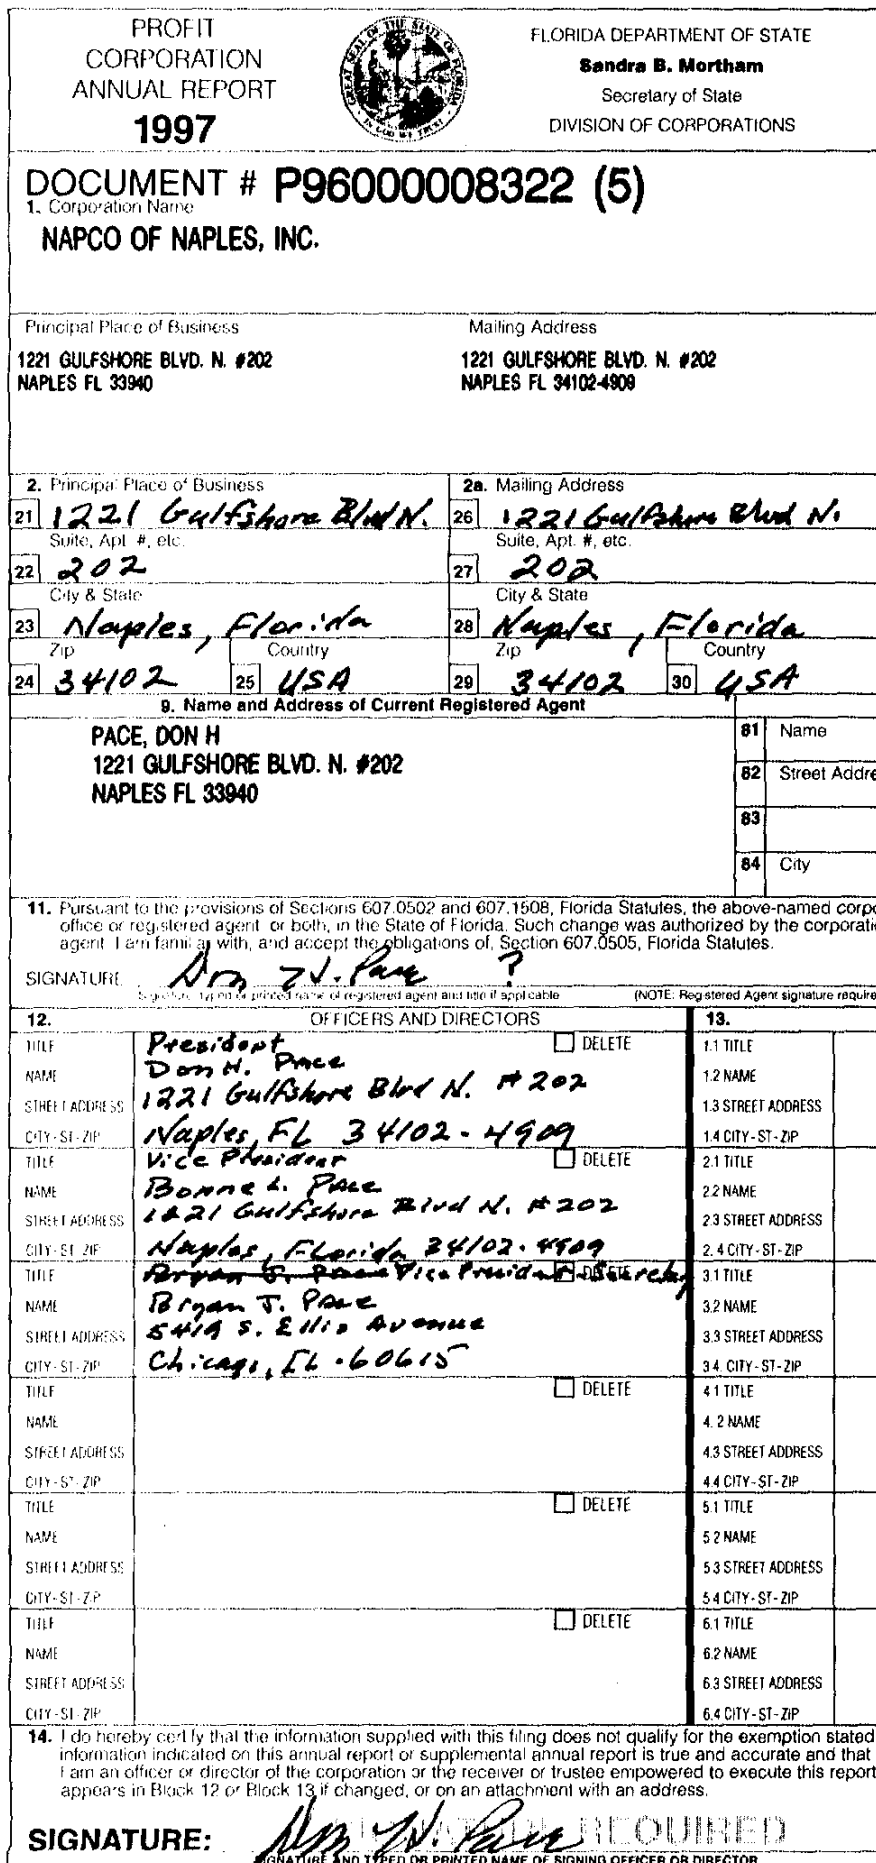 PROFIT
CORPORATION
ANNUAL REPORT
1997
GREAT SEAL OF THE STATE OF FLORIDA
IN GOD WE TRUST
FLORIDA DEPARTMENT OF STATE
Sandra B. Mortham
Secretary of State
DIVISION OF CORPORATIONS
DOCUMENT # P96000008322 (5)
1. Corporation Name
NAPCO OF NAPLES, INC.
Principal Place of Business
1221 GULFSHORE BLVD. N. #202
NAPLES FL 33940
Mailing Address
1221 GULFSHORE BLVD. N. #202
NAPLES FL 34102-4909
2. Principal Place of Business
21 1221 Gulfshore Blvd N.
Suite, Apt. #, etc.
22 202
City & State
23 Naples, Florida
Zip Country
24 34102 25 USA
2a. Mailing Address
26 1221 Gulfshore Blvd N.
Suite, Apt. #, etc.
27 202
City & State
28 Naples, Florida
Zip Country
29 34102 30 USA
9. Name and Address of Current Registered Agent
PACE, DON H
1221 GULFSHORE BLVD. N. #202
NAPLES FL 33940
81 Name
82 Street Addre
83
84 City
11. Pursuant to the provisions of Sections 607.0502 and 607.1508, Florida Statutes, the above-named corpo
office or registered agent, or both, in the State of Florida. Such change was authorized by the corporati
agent. I am familiar with, and accept the obligations of, Section 607.0505, Florida Statutes.
SIGNATURE Don H. Pace ?
Signature, typed or printed name of registered agent and title if applicable (NOTE: Registered Agent signature require
12. OFFICERS AND DIRECTORS 13.
TITLE President DELETE 1.1 TITLE
NAME Don H. Pace 1.2 NAME
STREET ADDRESS 1221 Gulfshore Blvd N. #202 1.3 STREET ADDRESS
CITY-ST-ZIP Naples, FL 34102-4909 1.4 CITY-ST-ZIP
TITLE Vice President DELETE 2.1 TITLE
NAME Bonne L. Pace 2.2 NAME
STREET ADDRESS 1221 Gulfshore Blvd N. #202 2.3 STREET ADDRESS
CITY-ST-ZIP Naples, Florida 34102-4909 2.4 CITY-ST-ZIP
TITLE Bryan J. Pace Vice President-Secretary DELETE 3.1 TITLE
NAME Bryan J. Pace 3.2 NAME
STREET ADDRESS 5419 S. Ellis Avenue 3.3 STREET ADDRESS
CITY-ST-ZIP Chicago, IL. 60615 3.4. CITY-ST-ZIP
TITLE DELETE 4.1 TITLE
NAME 4.2 NAME
STREET ADDRESS 4.3 STREET ADDRESS
CITY-ST-ZIP 4.4 CITY-ST-ZIP
TITLE DELETE 5.1 TITLE
NAME 5.2 NAME
STREET ADDRESS 5.3 STREET ADDRESS
CITY-ST-ZIP 5.4 CITY-ST-ZIP
TITLE DELETE 6.1 TITLE
NAME 6.2 NAME
STREET ADDRESS 6.3 STREET ADDRESS
CITY-ST-ZIP 6.4 CITY-ST-ZIP
14. I do hereby certify that the information supplied with this filing does not qualify for the exemption stated
information indicated on this annual report or supplemental annual report is true and accurate and that
I am an officer or director of the corporation or the receiver or trustee empowered to execute this report
appears in Block 12 or Block 13 if changed, or on an attachment with an address.
SIGNATURE: Don H. Pace SIGNATURE REQUIRED
SIGNATURE AND TYPED OR PRINTED NAME OF SIGNING OFFICER OR DIRECTOR